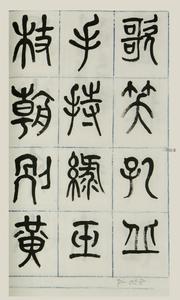 歌笑孔丘
手持綠玉
杖朝別黃